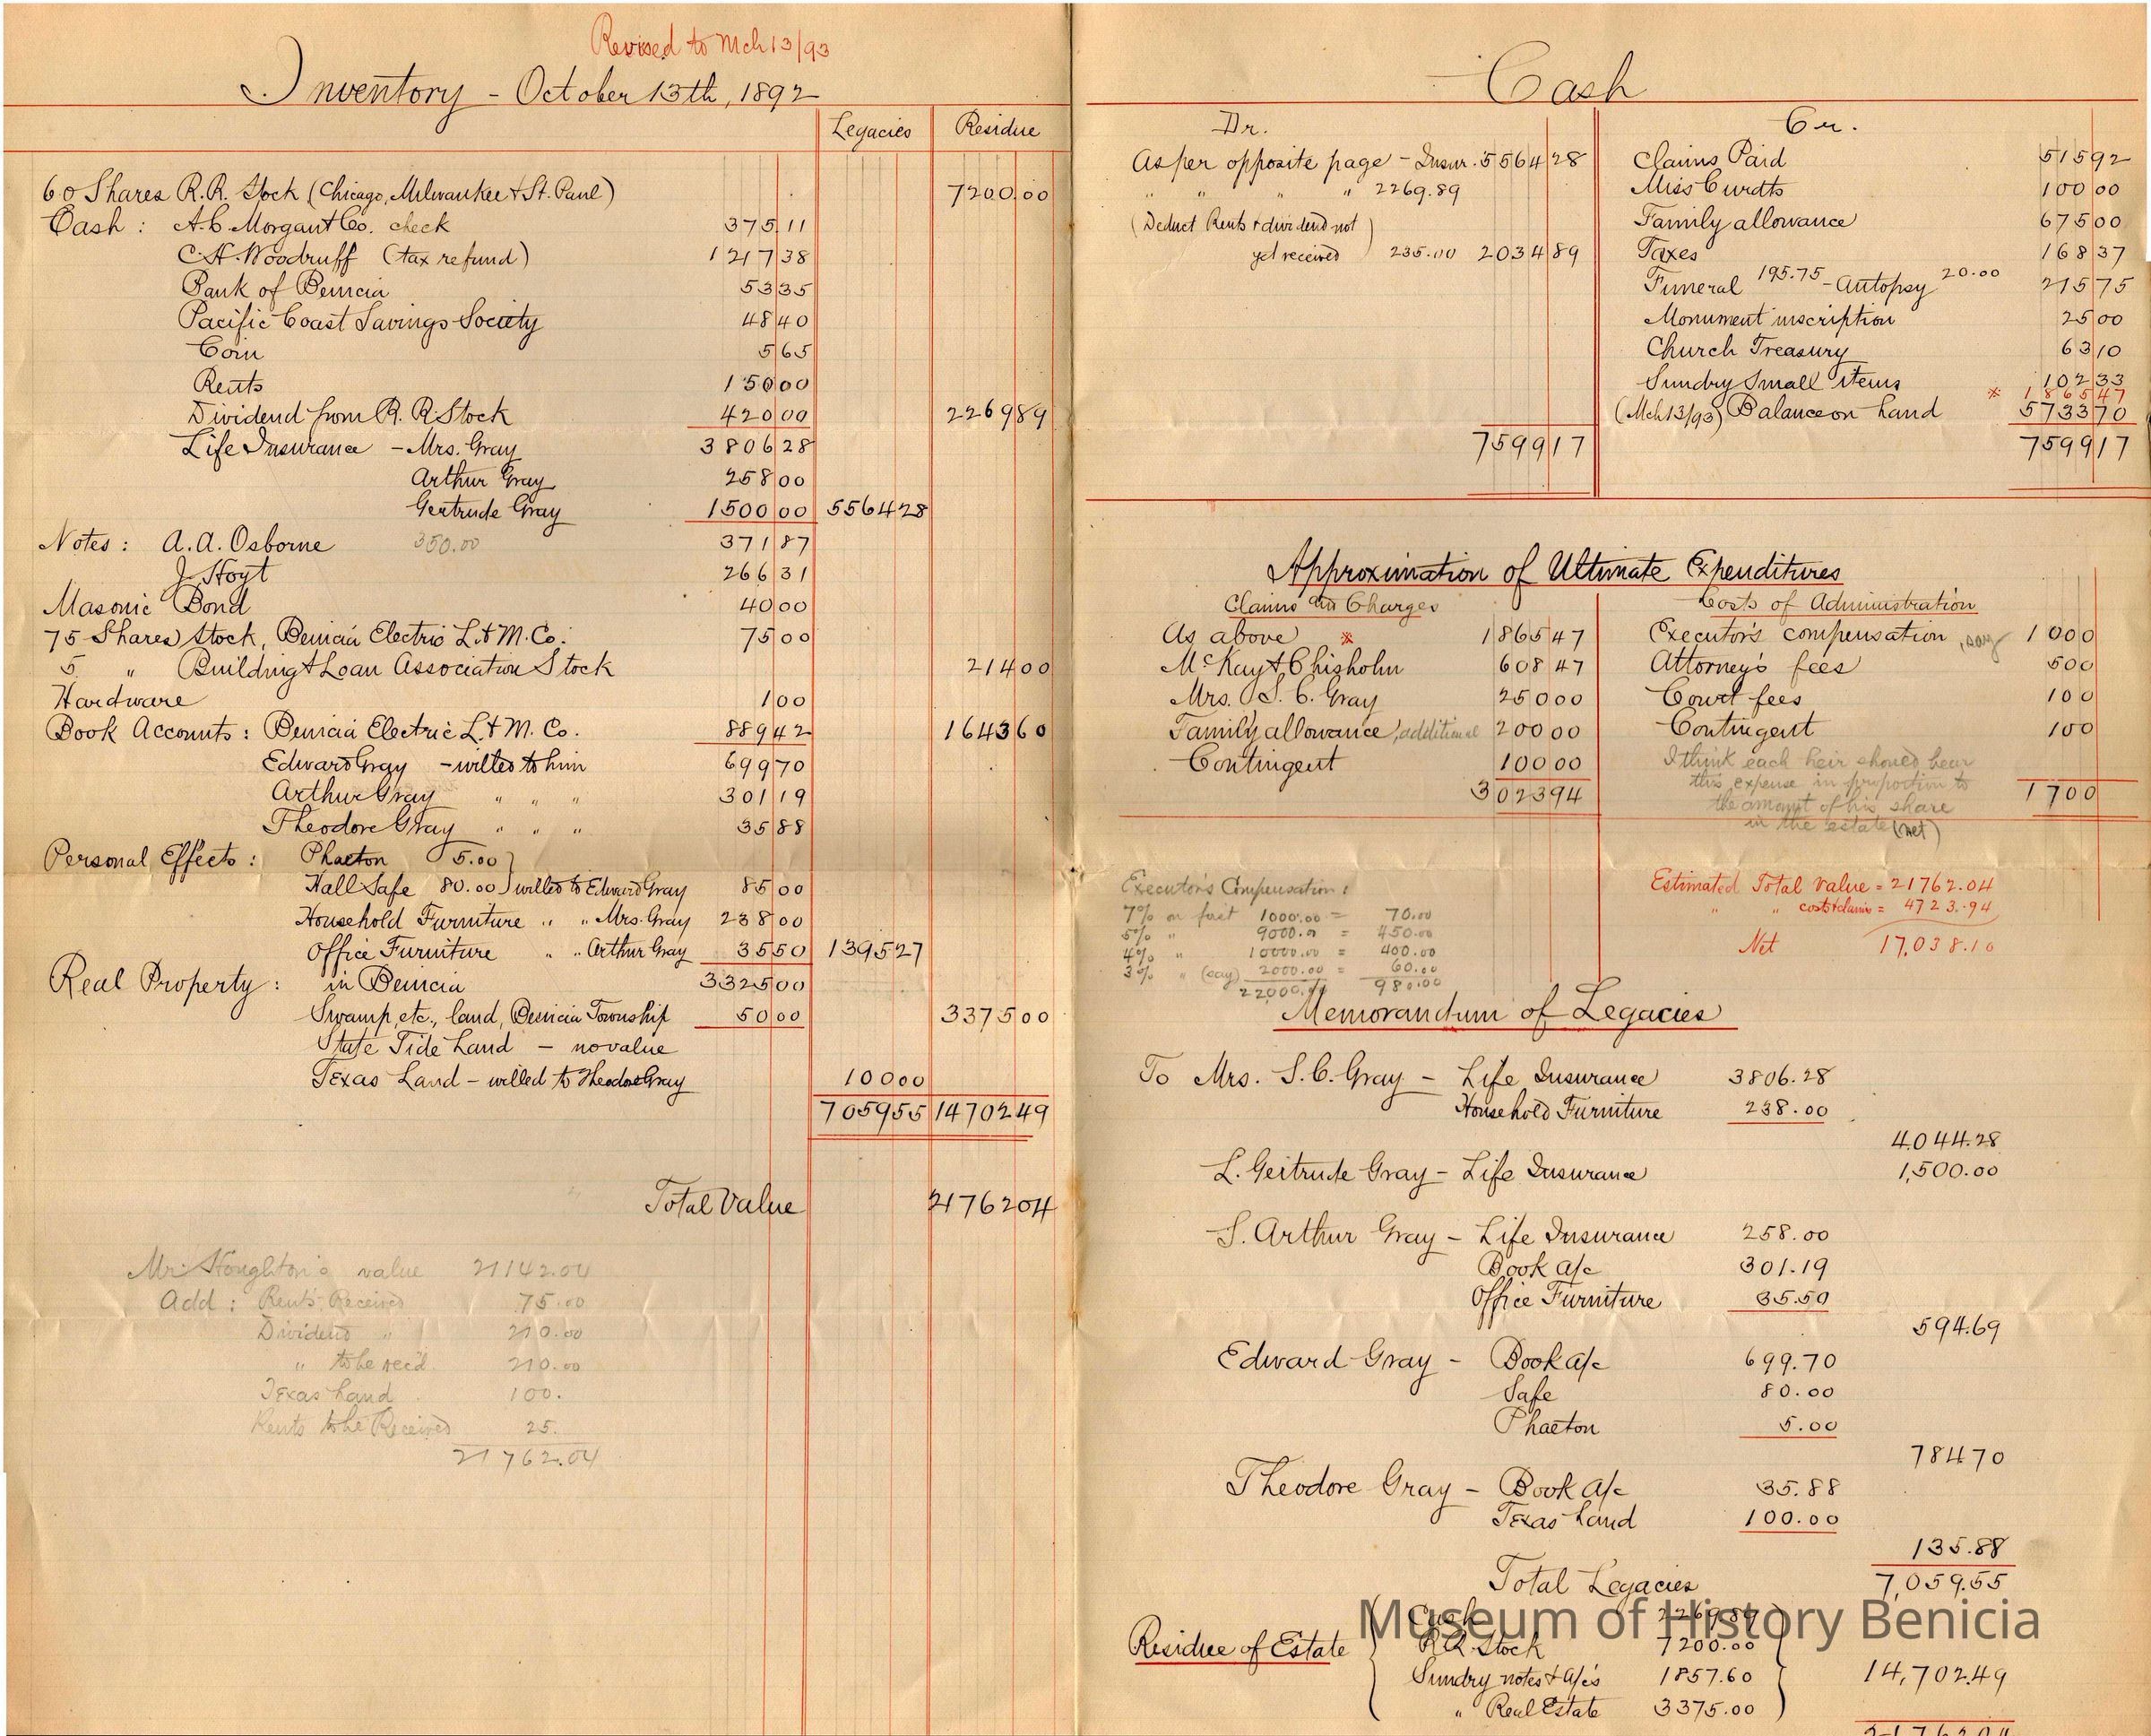 Revised to Mch 13/93
Inventory - October 13th, 1892
Legacies Residue
60 Shares R.R. Stock (Chicago, Milwaukee & St. Paul) 7200.00
Cash : A.C. Morgan & Co. check 375 11
C.H. Woodruff (tax refund) 1217 38
Bank of Benicia 53 35
Pacific Coast Savings Society 48 40
Coin 5 65
Rents 150 00
Dividend from R.R. Stock 420 00 2269 89
Life Insurance - Mrs. Gray 3806 28
Arthur Gray 258 00
Gertrude Gray 1500 00 5564 28
Notes : A.A. Osborne 350.00 371 87
J. Hoyt 266 31
Masonic Bond 40 00
75 Shares Stock, Benicia Electric L. & M. Co. 75 00
5 " Building & Loan Association Stock 214 00
Hardware 1 00
Book Accounts : Benicia Electric L. & M. Co. 889 42 1643 60
Edward Gray - willed to him 699 70
Arthur Gray " " " 301 19
Theodore Gray " " " 35 88
Personal Effects : Phaeton 5.00 }
Hall Safe 80.00 } willed to Edward Gray 85 00
Household Furniture " " Mrs. Gray 238 00
Office Furniture " " Arthur Gray 35 50 1395 27
Real Property : in Benicia 3325 00
Swamp, etc., land, Benicia Township 50 00 3375 00
State Tide Land - no value
Texas Land - willed to Theodore Gray 100 00
7059 55 14702 49
Total Value 21762 04
Mr. Houghton's value 21142.04
Add : Rents Received 75.00
Dividend " 210.00
" to be rec'd. 210.00
Texas Land 100.
Rents to be Received 25.
21762.04
Cash
Dr.
As per opposite page - Insur. 5564 28
" " " " 2269.89
(Deduct Rents & dividend not
yet received) 235.00 2034 89
7599 17
Cr.
Claims Paid 515 92
Miss Curdts 100 00
Family allowance 675 00
Taxes 168 37
Funeral 195.75 - Autopsy 20.00 215 75
Monument inscription 25 00
Church Treasury 63 10
Sundry Small items 102 33
* 1865 47
(Mch 13/93) Balance on hand 5733 70
7599 17
Approximation of Ultimate Expenditures
Claims and Charges
As above * 1865 47
McKay & Chisholm 608 47
Mrs. S. C. Gray 250 00
Family allowance, additional 200 00
Contingent 100 00
3023 94
Costs of Administration
Executor's compensation, say 1000
Attorney's fees 500
Court fees 100
Contingent 100
I think each heir should bear
this expense in proportion to
the amount of his share
in the estate (net)
1700
Executor's Compensation :
7% on first 1000.00 = 70.00
5% " 9000.00 = 450.00
4% " 10000.00 = 400.00
3% " (say) 2000.00 = 60.00
22000.00 980.00
Estimated Total Value = 21762.04
" " costs & claims = 4723.94
Net 17,038.10
Memorandum of Legacies
To Mrs. S. C. Gray - Life Insurance 3806.28
Household Furniture 238.00
4044.28
L. Gertrude Gray - Life Insurance 1,500.00
S. Arthur Gray - Life Insurance 258.00
Book a/c 301.19
Office Furniture 35.50
594.69
Edward Gray - Book a/c 699.70
Safe 80.00
Phaeton 5.00
784 70
Theodore Gray - Book a/c 35.88
Texas Land 100.00
135.88
Total Legacies 7,059.55
Residue of Estate { Cash 2269.89
R.R. Stock 7200.00
Sundry notes & a/c's 1857.60
" Real Estate 3375.00 } 14,702.49
21762 04
Museum of History Benicia